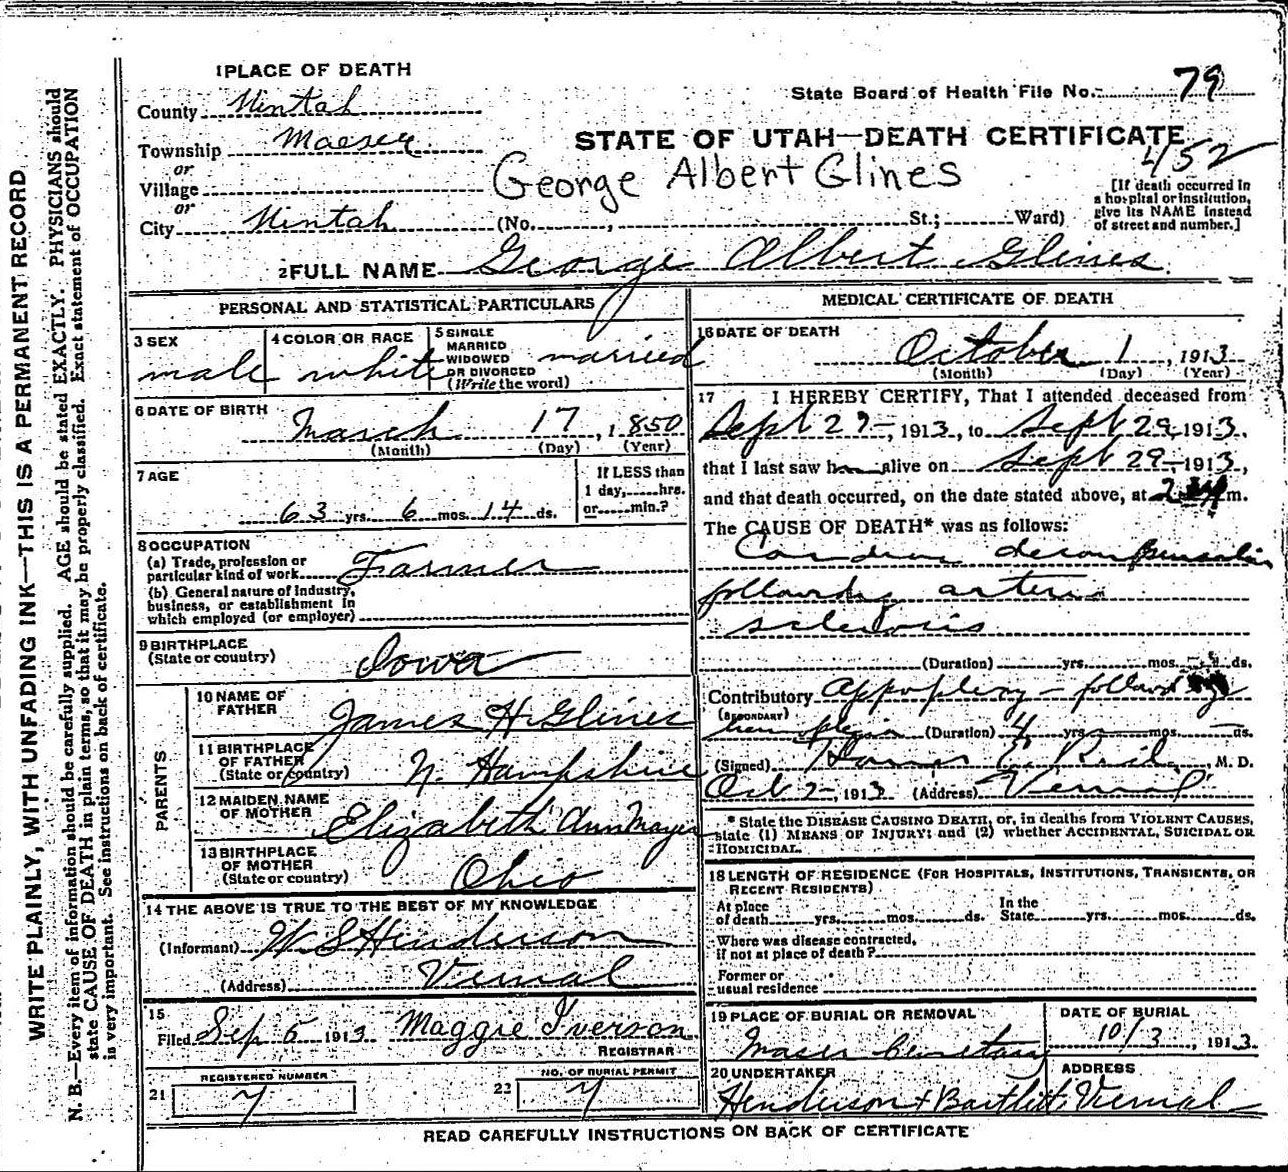 WRITE PLAINLY, WITH UNFADING INK—THIS IS A PERMANENT RECORD.
N. B.—Every item of information should be carefully supplied. AGE should be stated EXACTLY. PHYSICIANS should
state CAUSE OF DEATH in plain terms, so that it may be properly classified. Exact statement of OCCUPATION
is very important. See instructions on back of certificate.
1 PLACE OF DEATH
State Board of Health File No. 79
County Uintah
Township Maeser
STATE OF UTAH—DEATH CERTIFICATE
452
or
Village
George Albert Glines
[If death occurred in
a hospital or institution,
give its NAME instead
of street and number.]
or
City Uintah (No. , St.; Ward)
2 FULL NAME George Albert Glines
PERSONAL AND STATISTICAL PARTICULARS
3 SEX male
4 COLOR OR RACE white
5 SINGLE
MARRIED
WIDOWED
OR DIVORCED
(Write the word) married
6 DATE OF BIRTH
March 17, 1850
(Month) (Day) (Year)
7 AGE
63 yrs. 6 mos. 14 ds.
If LESS than
1 day, hrs.
or min.?
8 OCCUPATION
(a) Trade, profession or
particular kind of work Farmer
(b) General nature of Industry,
business, or establishment in
which employed (or employer)
9 BIRTHPLACE
(State or country) Iowa
PARENTS
10 NAME OF
FATHER James H Glines
11 BIRTHPLACE
OF FATHER
(State or country) N. Hampshire
12 MAIDEN NAME
OF MOTHER Elizabeth Ann Mayer
13 BIRTHPLACE
OF MOTHER
(State or country) Ohio
14 THE ABOVE IS TRUE TO THE BEST OF MY KNOWLEDGE
(Informant) W. S Henderson
(Address) Vernal
15
Filed Sep 5 1913 Maggie Iverson
REGISTRAR
21 REGISTERED NUMBER
7
22 NO. OF BURIAL PERMIT
7
MEDICAL CERTIFICATE OF DEATH
16 DATE OF DEATH
October 1, 1913
(Month) (Day) (Year)
17 I HEREBY CERTIFY, That I attended deceased from
Sept 27, 1913, to Sept 29, 1913,
that I last saw h alive on Sept 29, 1913,
and that death occurred, on the date stated above, at 2 m.
The CAUSE OF DEATH* was as follows:
decompensation
following arterio
sclerosis
(Duration) yrs. mos. ds.
Contributory Appoplexy – followed
(SECONDARY)
(Duration) 4 yrs. mos. ds.
(Signed) M. D.
Oct 2, 1913 (Address) Vernal
* State the DISEASE CAUSING DEATH, or, in deaths from VIOLENT CAUSES,
state (1) MEANS OF INJURY; and (2) whether ACCIDENTAL, SUICIDAL OR
HOMICIDAL.
18 LENGTH OF RESIDENCE (FOR HOSPITALS, INSTITUTIONS, TRANSIENTS, OR
RECENT RESIDENTS)
At place
of death yrs. mos. ds.
In the
State yrs. mos. ds.
Where was disease contracted,
if not at place of death?
Former or
usual residence
19 PLACE OF BURIAL OR REMOVAL
Maser Cemetary
DATE OF BURIAL
10/3, 1913.
20 UNDERTAKER
Henderson + Bartlett
ADDRESS
Vernal
READ CAREFULLY INSTRUCTIONS ON BACK OF CERTIFICATE